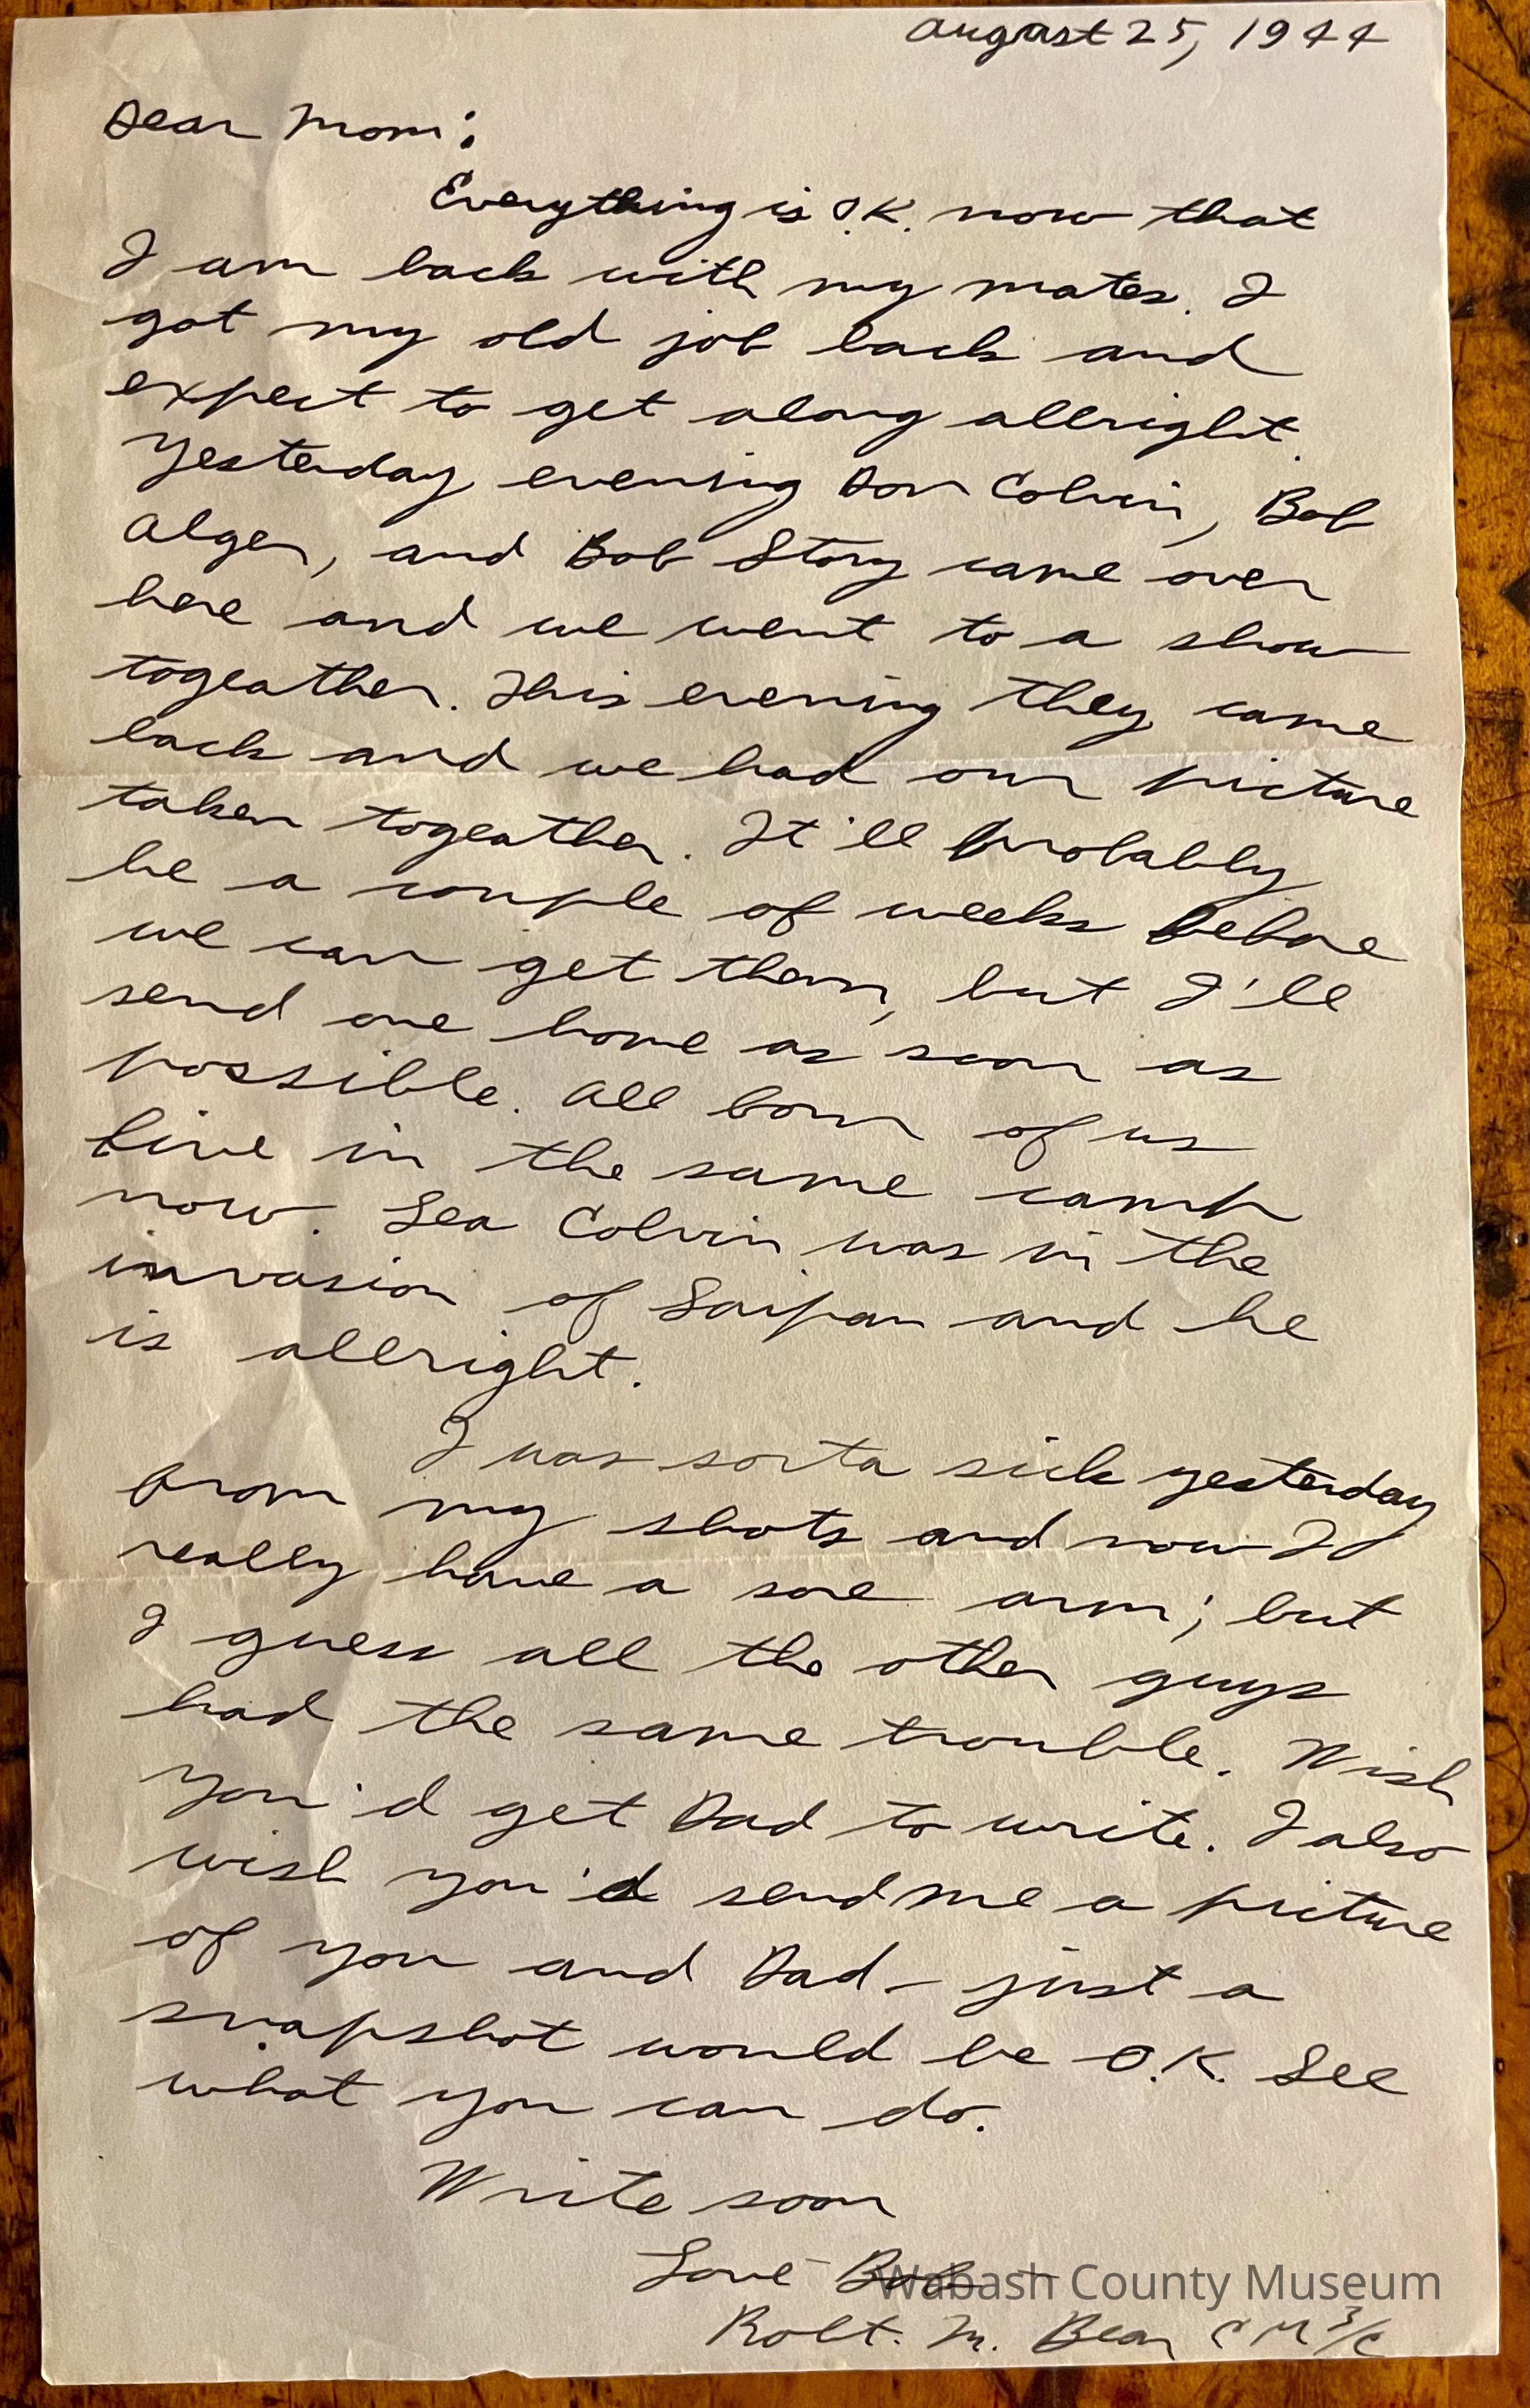 August 25, 1944
Dear Mom:
Everything is O.K. now that
I am back with my mates. I
got my old job back and
expect to get along allright.
Yesterday evening Don Colvin, Bob
Alger, and Bob Story came over
here and we went to a show
togeather. This evening they came
back and we had our picture
taken togeather. It'll probably
be a couple of weeks before
we can get them, but I'll
send one home as soon as
possible. All four of us
live in the same camp
now. Lea Colvin was in the
invasion of Saipan and he
is allright.
I was sorta sick yesterday
from my shots and now I
really have a sore arm; but
I guess all the other guys
had the same trouble. Wish
you'd get Dad to write. I also
wish you'd send me a picture
of you and Dad - just a
snapshot would be O.K. See
what you can do.
Write soon
Love Bob
Wabash County Museum
Robt. M. Bear CM 3/c